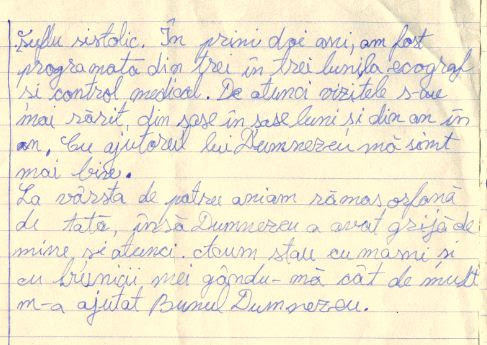 Suflu sistolic. În prini doi ani, am fost
programata din trei în trei luni, la ecograf
si control medical. De atunci vizitele s-au
mai rărit, din sase în sase luni si din an în
an. Cu ajutorul lui Dumnezeu mă simt
mai bine.
La vârsta de patru ani am rămas orfană
de tată, însă Dumnezeu a avut grijă de
mine si atunci. Acum stau cu mami si
cu bunicii mei gându-mă cât de mult
m-a ajutat Bunul Dumnezeu.